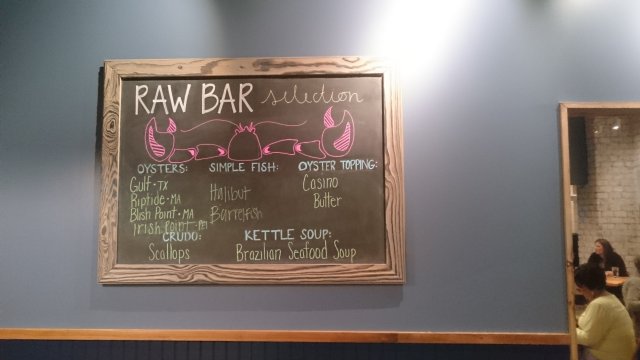 RAW BAR selection
OYSTERS: SIMPLE FISH: OYSTER TOPPING:
Gulf · TX
Riptide · MA
Blish Point · MA
Irish Point · PEI
Halibut
Barrelfish
Casino
Butter
CRUDO:
Scallops
KETTLE SOUP:
Brazilian Seafood Soup